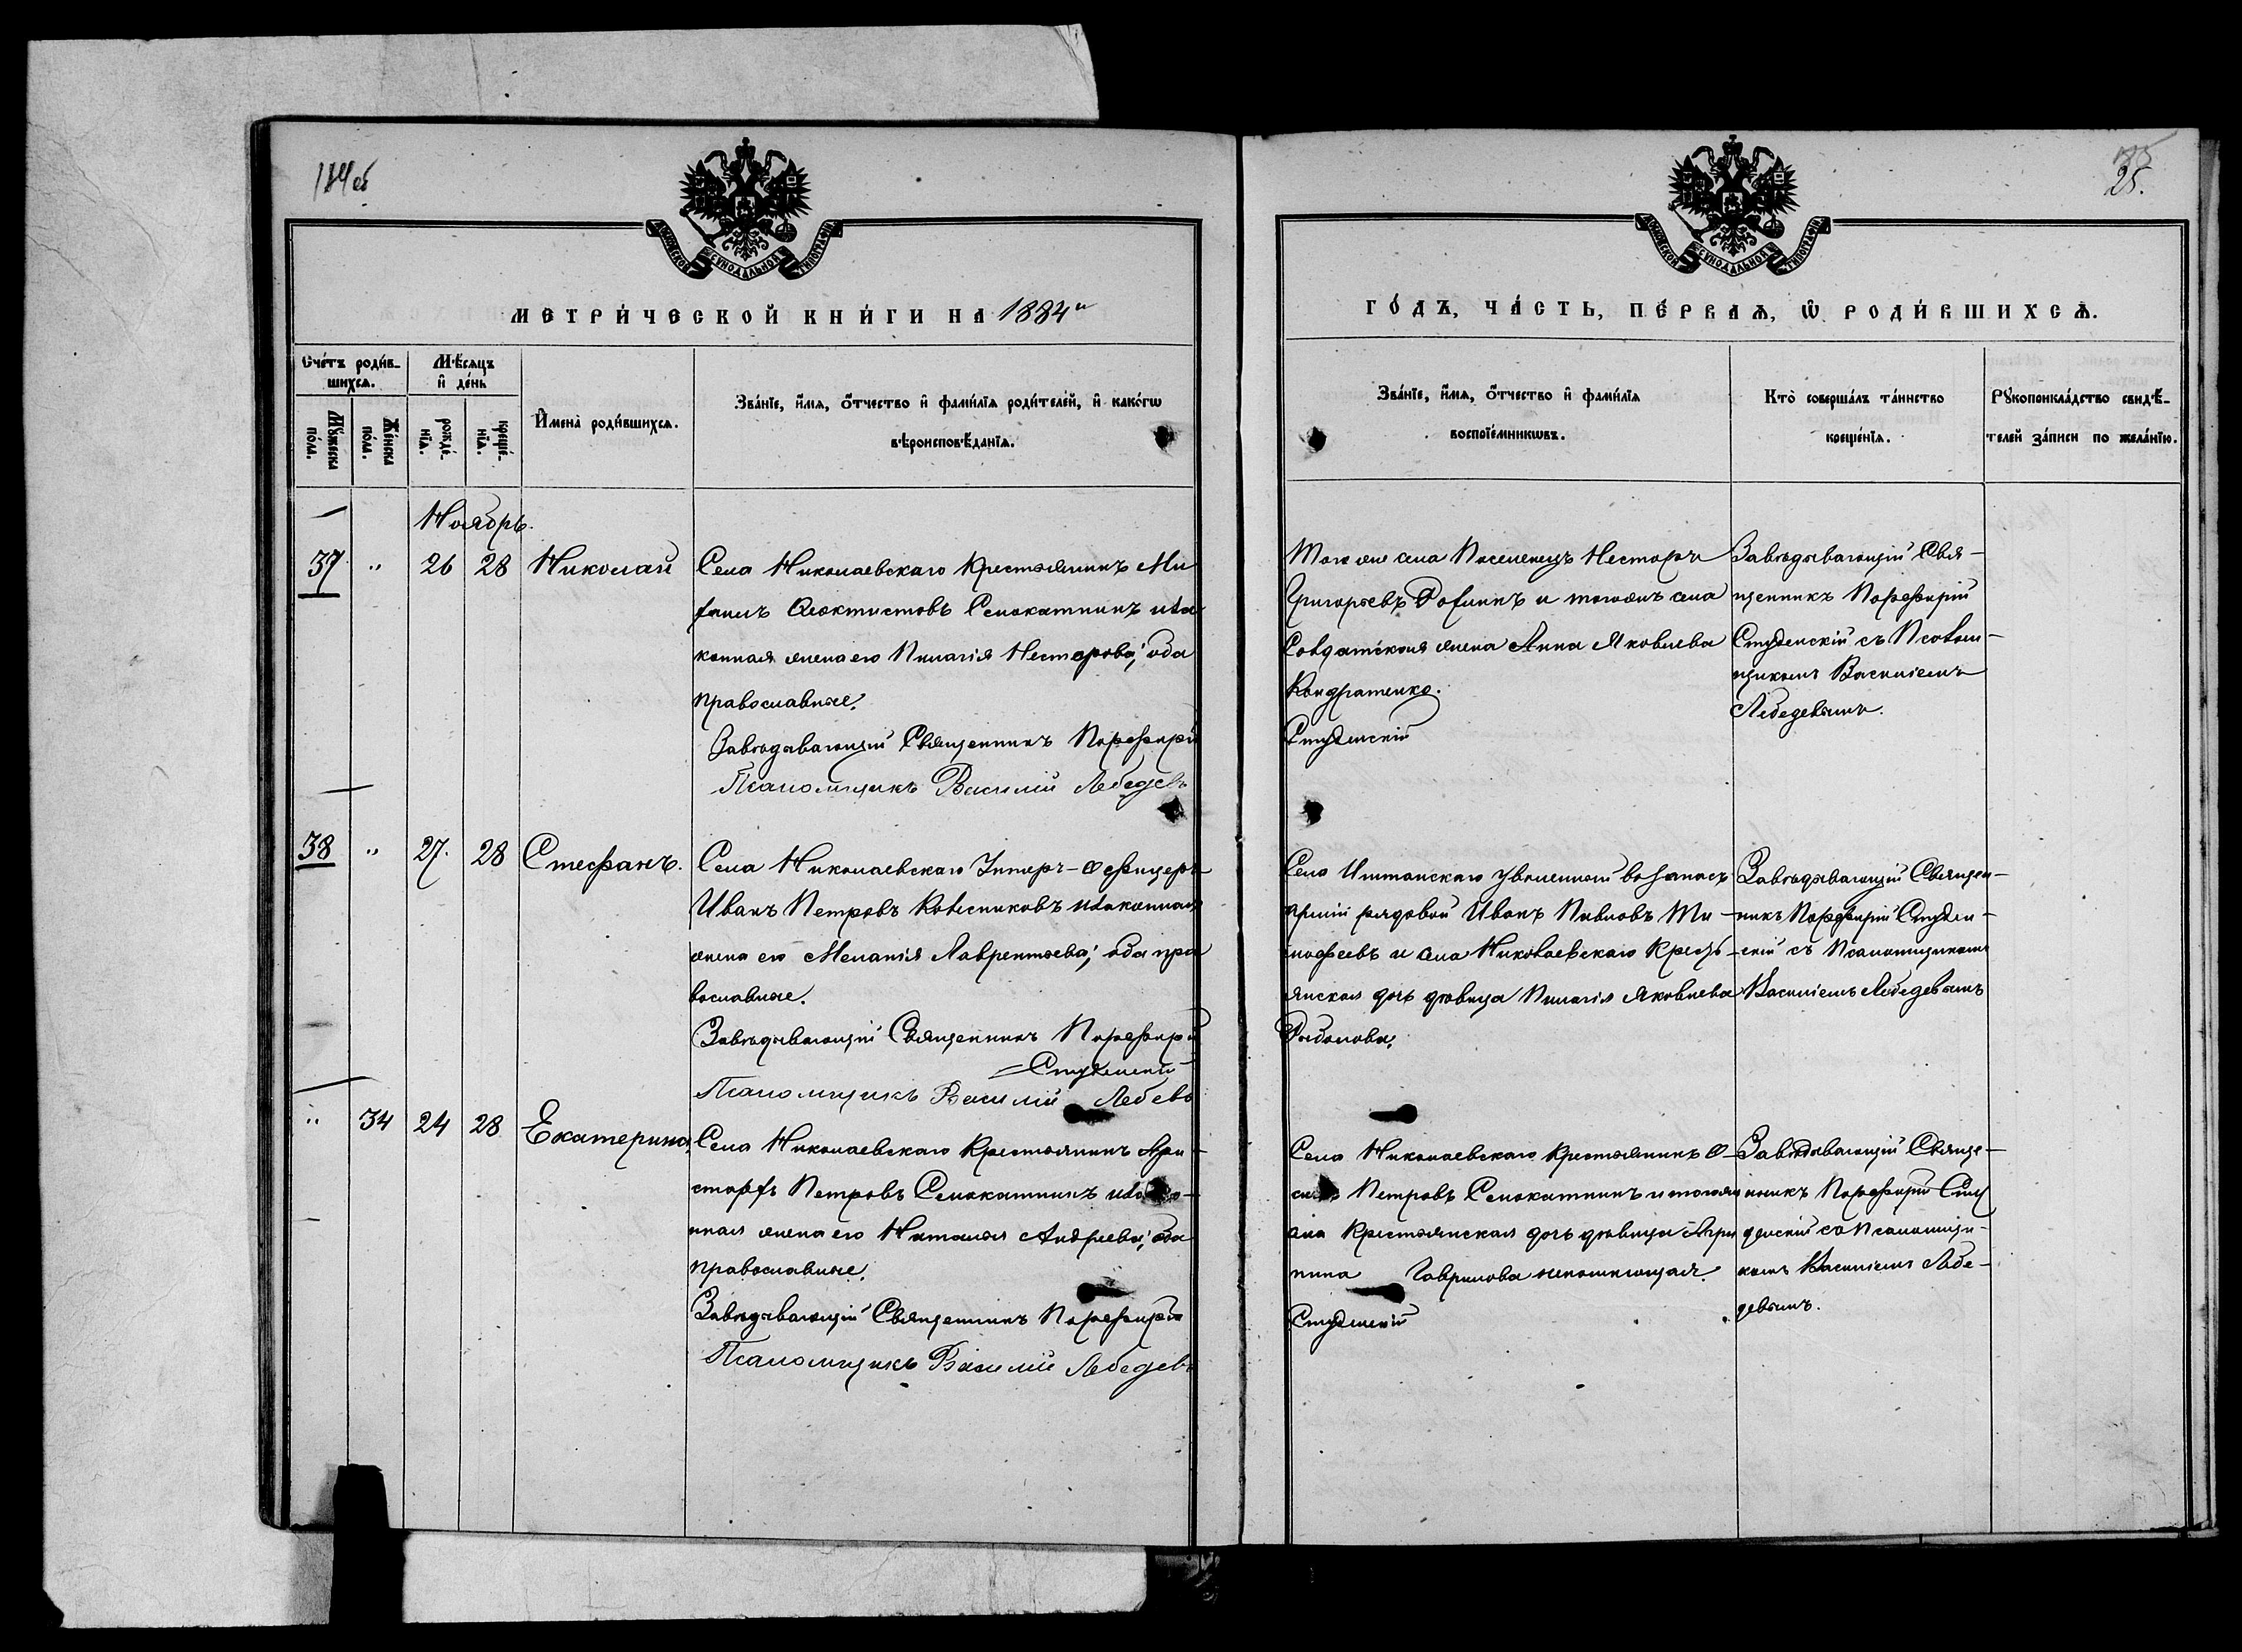 25.
МЕТРИ́ЧЕСКОЙ КНИ́ГИ НА 1884й
ГО́ДЪ, ЧА́СТЬ, ПЕ́РВАѦ, Ѡ РОДИ́ВШИХСѦ.
Сче́тъ роди́в-
шихсѧ.
Мꙋжеска по́ла.
Же́нска по́ла.
Мѣ́сѧцъ
и҆ де́нь
рожде́-
нїѧ.
креще́-
нїѧ.
И҆мена̀ роди́вшихсѧ.
Зва́нїе, и҆́мѧ, ѻ҆́тчество и҆ фами́лїѧ роди́телей, и҆ како́гѡ
вѣроисповѣ́данїѧ.
Зва́нїе, и҆́мѧ, ѻ҆́тчество и҆ фами́лїѧ
воспрїе́мникѡвъ.
Кто̀ соверша́лъ та́инство
креще́нїѧ.
Рꙋкоприкла́дство свидѣ́-
телей за́писи по жела́нїю.
Ноябрь.
37 " 26 28 Николай
Села Николаевскаго Крестьянинъ Ми
хаилъ Феоктистовъ Семокатнинъ и за
конная жена его Пилагія Несторова; оба
православные.
Завѣдывающій Священникъ Порфирій
Псаломщикъ Василій Лебедевъ
Того же села Поселенецъ Несторъ
Григорьевъ и тогоже села
Солдатская жена Анна Яковлева
Кондратенко.
Студенскій
Завѣдывающій Свя-
щенникъ Порфирій
Студенскій съ Псалом-
щикомъ Василіемъ
Лебедевымъ.
38 " 27. 28 Стефанъ.
Села Николаевскаго Унтеръ-Офицеръ
Иванъ Петровъ Колесниковъ и законная
жена его Меланія Лаврентьева; оба пра
вославные.
Завѣдывающій Священникъ Порфирій
Студенскій
Псаломщикъ Василій Лебевъ
Села уволенный въ запасъ
армій рядовой Иванъ Павловъ Ти-
мофеевъ и села Николаевскаго Кресть-
янская дочь дѣвица Пилагія Яковлева
Завѣдывающій Священ-
никъ Порфирій Студен-
скій съ Псаломщикомъ
Василіемъ Лебедевымъ
" 34 24 28 Екатерина.
Села Николаевскаго Крестьянинъ Ари-
стархъ Петровъ Семокатнинъ и зако-
нная жена его Наталья Андреева; оба
православные.
Завѣдывающій Священникъ Порфирій
Псаломщикъ Василій Лебедевъ
Села Николаевскаго Крестьянинъ О-
Петровъ Семокатнинъ и тогоже
села Крестьянская дочь дѣвица
Гаврилова
Студенскій
Завѣдывающій Свяще-
нникъ Порфирій Сту
денскій съ Псаломщи-
комъ Василіемъ Лебе-
девымъ.